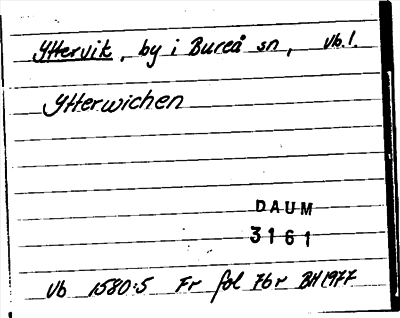 Yttervik, by i Bureå sn, Vb.l.
Ytterwichen
DAUM
3161
Vb 1580:5 Fr fol 7br BH 1977